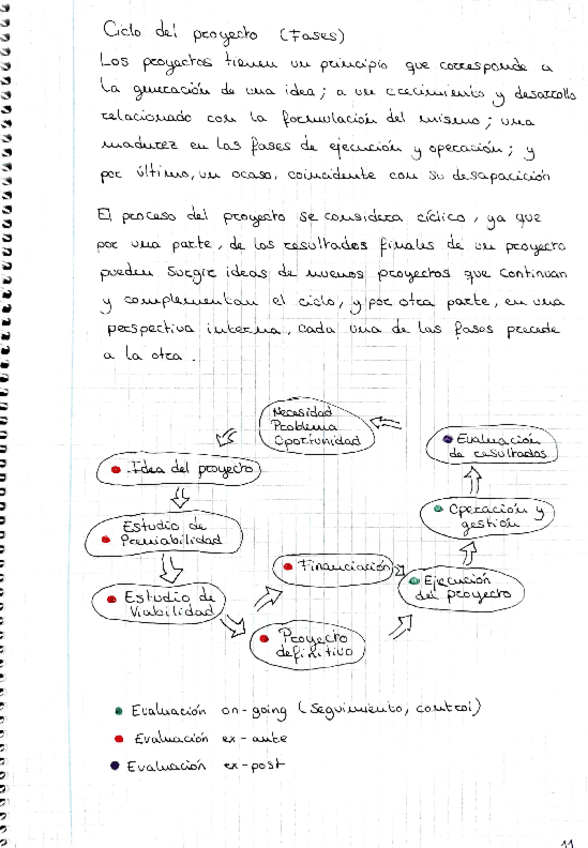 Ciclo del proyecto (Fases)
Los proyectos tienen un principio que corresponde a
la generación de una idea; a un crecimiento y desarrollo
relacionado con la formulación del mismo; una
madurez en las fases de ejecución y operación; y
por último, un ocaso, coincidente con su desaparición
El proceso del proyecto se considera cíclico, ya que
por una parte, de los resultados finales de un proyecto
pueden surgir ideas de nuevos proyectos que continuan
y complementan el ciclo, y por otra parte, en una
perspectiva interna, cada una de las fases precede
a la otra.
Necesidad
Problema
Oportunidad
Evaluación
de resultados
Idea del proyecto
Operación y
gestión
Estudio de
Previabilidad
Financiación
Ejecución
del proyecto
Estudio de
Viabilidad
Proyecto
definitivo
Evaluación on-going (Seguimiento, control)
Evaluación ex-ante
Evaluación ex-post
11